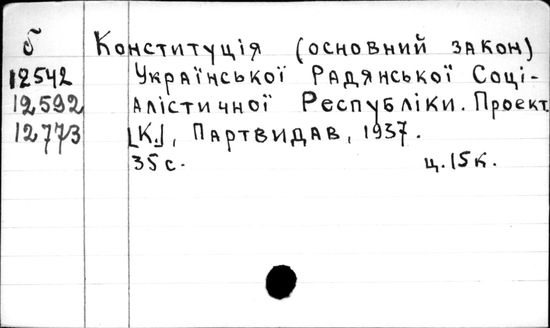 б Конституція (основний закон)
12542 Української Радянської Соці-
12592 алістичної Республіки. Проект
12773 [К.], Партвидав, 1937.
35 с. ц. 15 к.